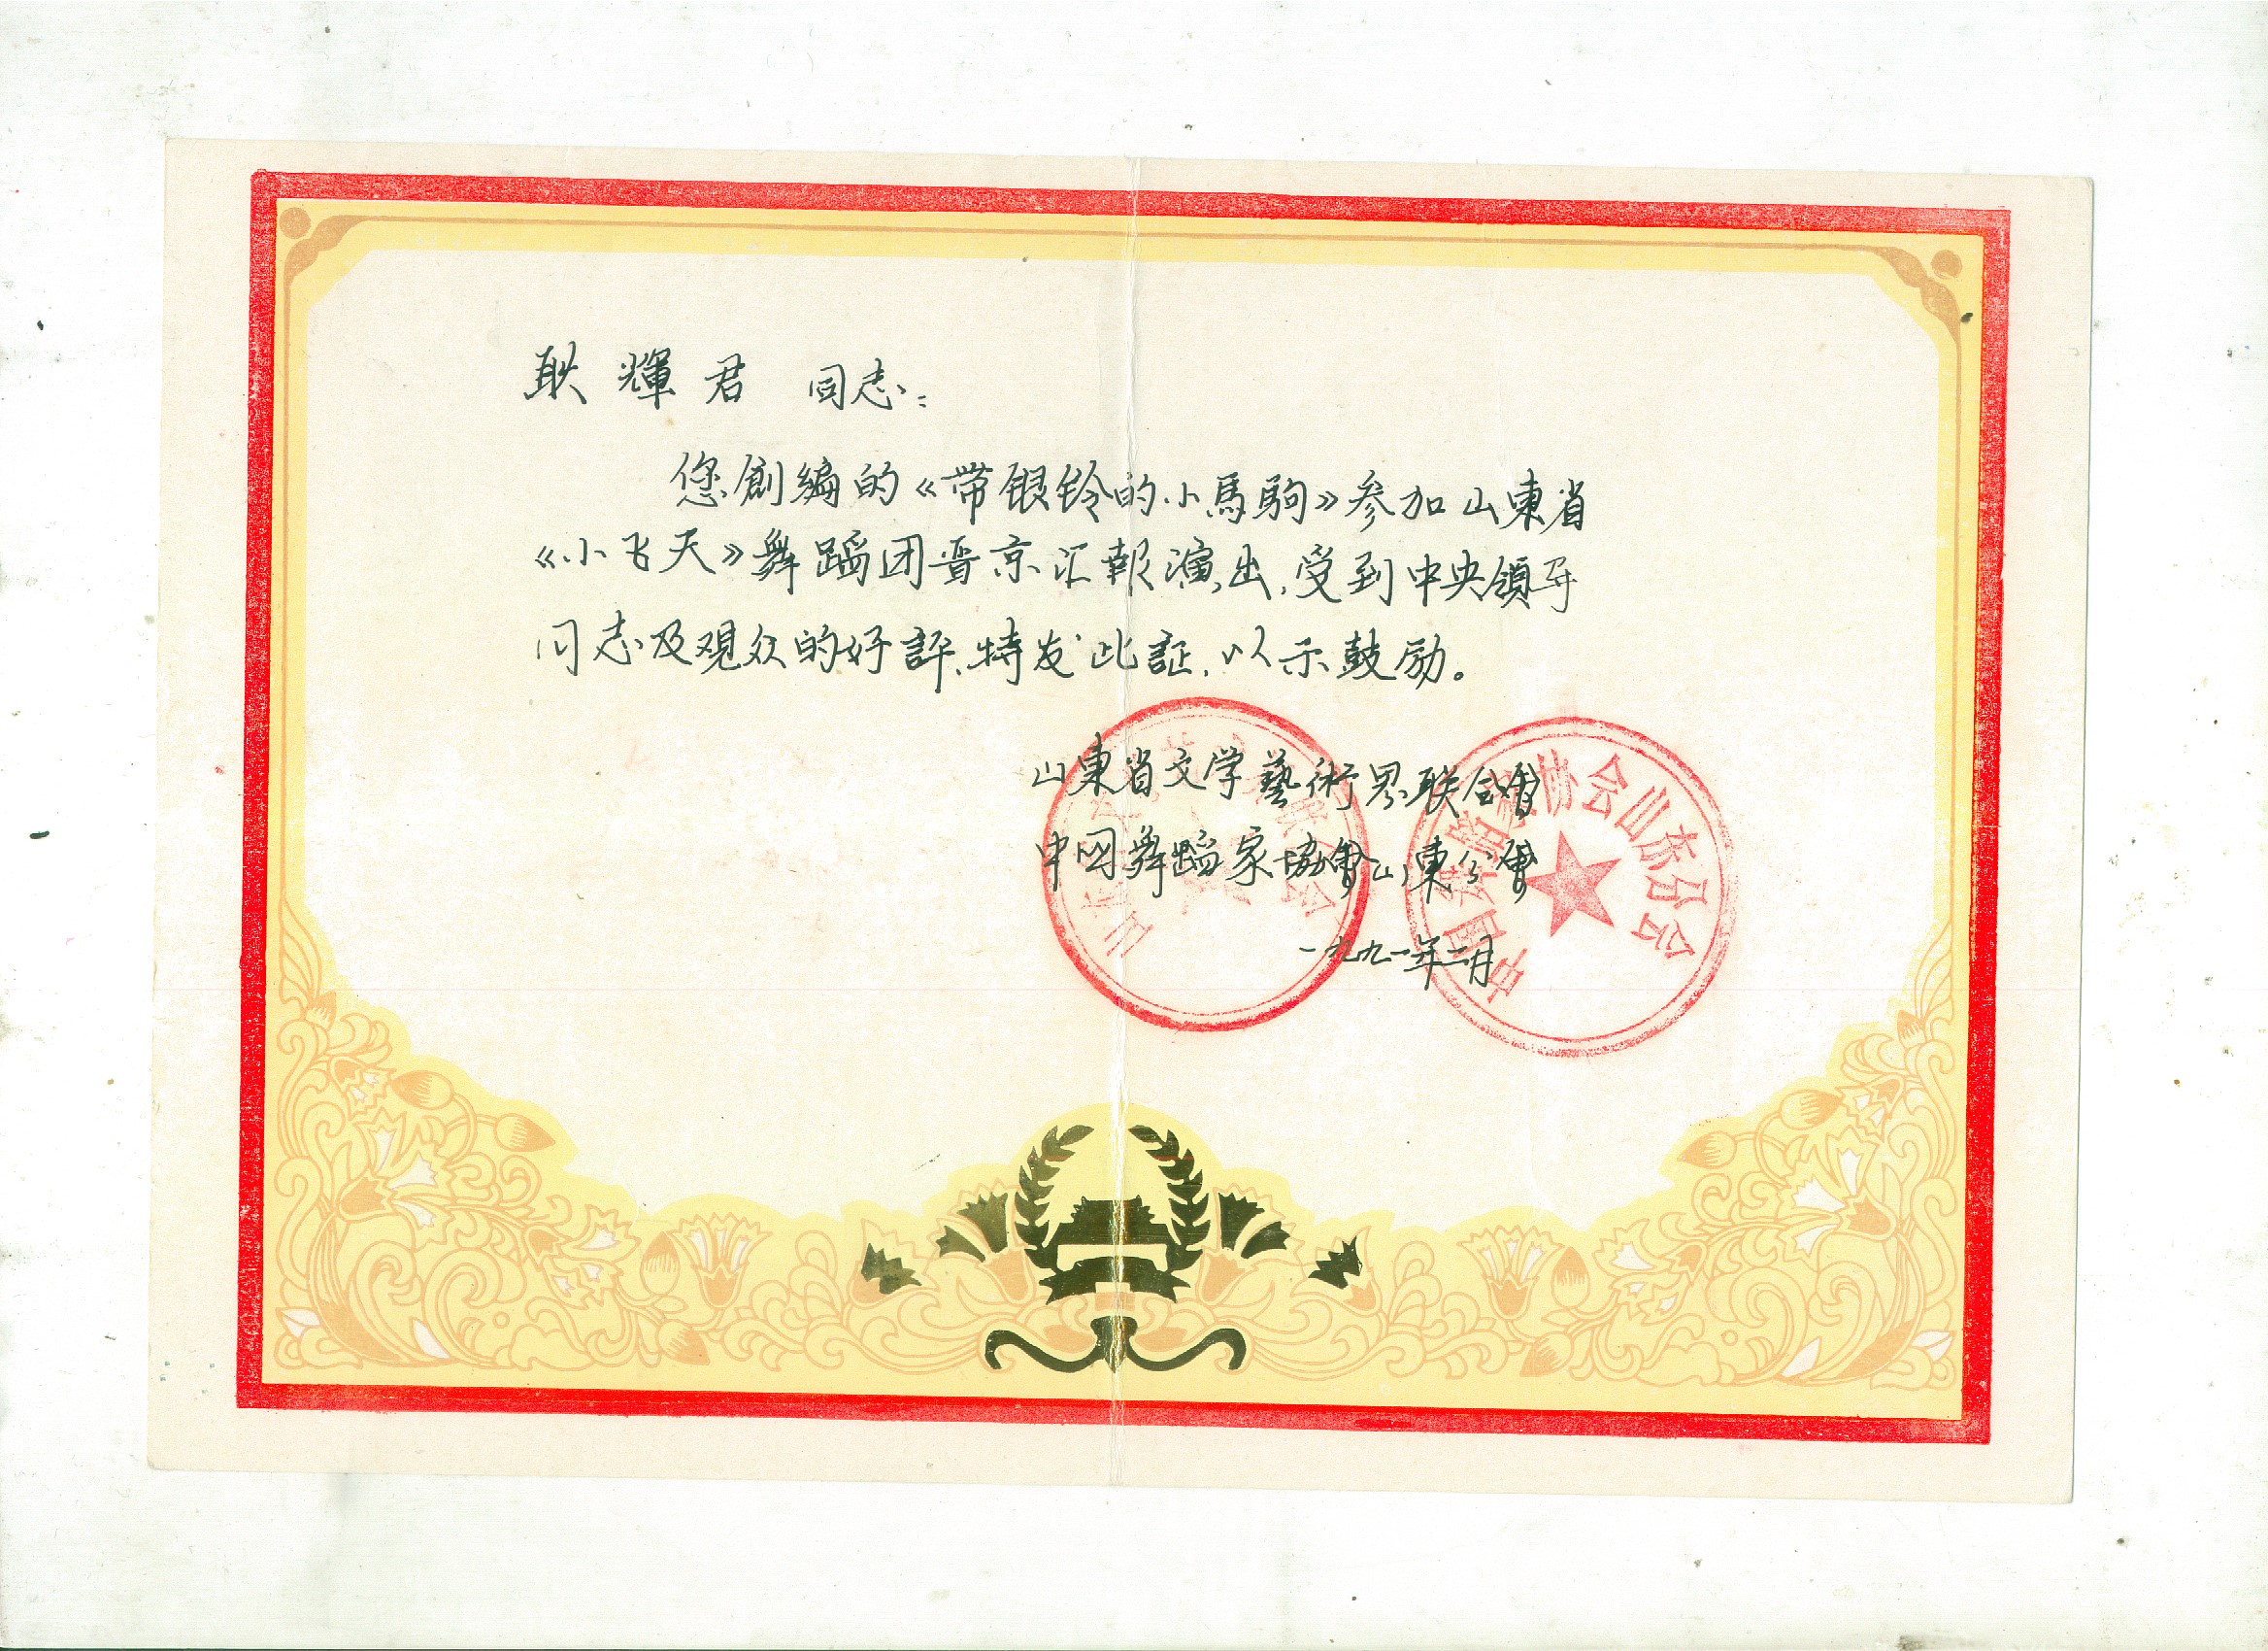 耿輝君 同志：
您創編的《带银铃的小馬駒》参加山東省
《小飞天》舞蹈团晋京汇報演出，受到中央領导
同志及观众的好評，特发此証，以示鼓励。
山東省文学藝術界联合會
中国舞蹈家協會山東分會
一九九一年二月
中国舞蹈家协会山东分会